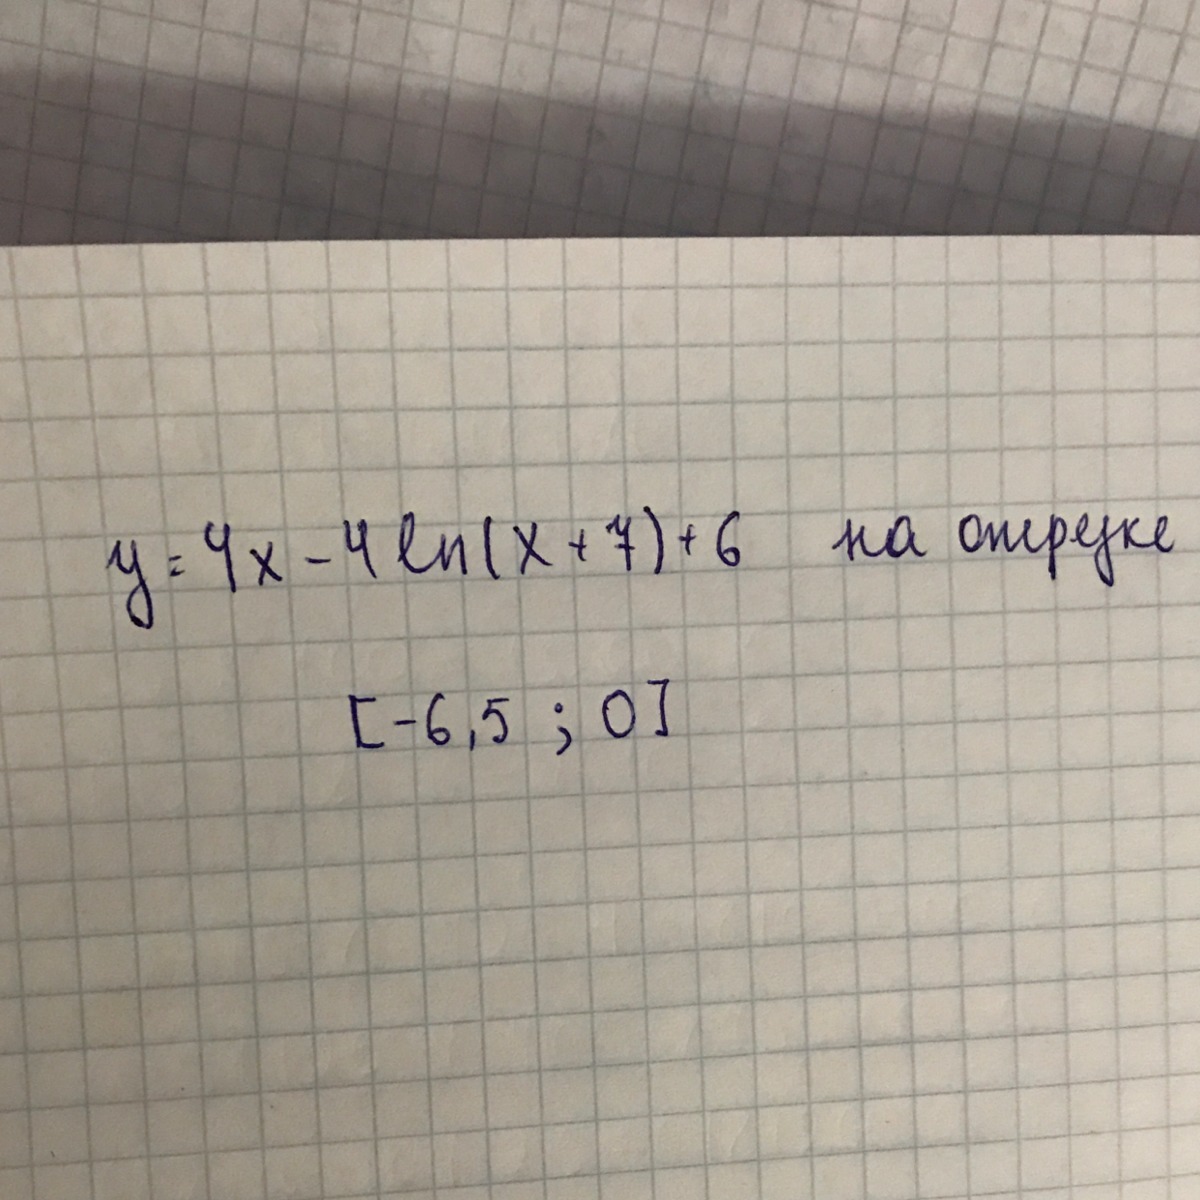 y = 4x - 4 ln(x + 7) + 6 на отрезке
[-6,5 ; 0]